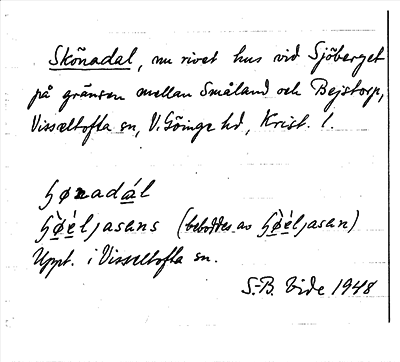 Skönadal, nu rivet hus vid Sjöberget
på gränsen mellan Småland och Bejstorp,
Visseltofta sn, V. Göinge hd, Krist. l.
ʃønadál
ʃø̀éljasans (beboddes av ʃø̀éljasan)
Uppt. i Visseltofta sn.
S.-B. Vide 1948